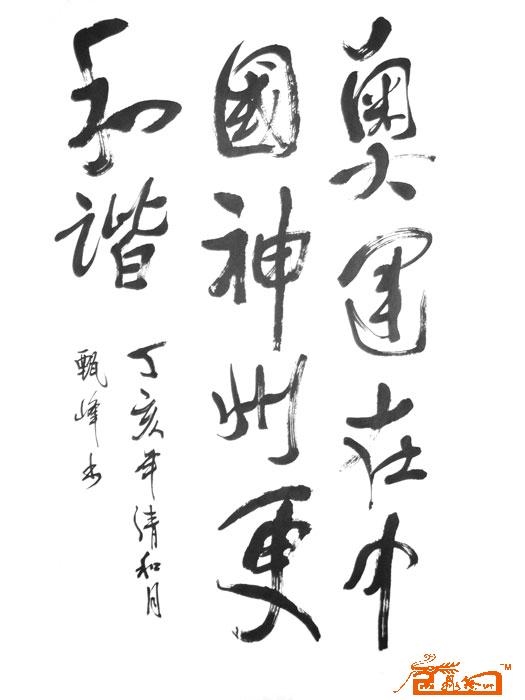 奥運在中
國神州更
和谐
丁亥年清和月
甄峰书
TM